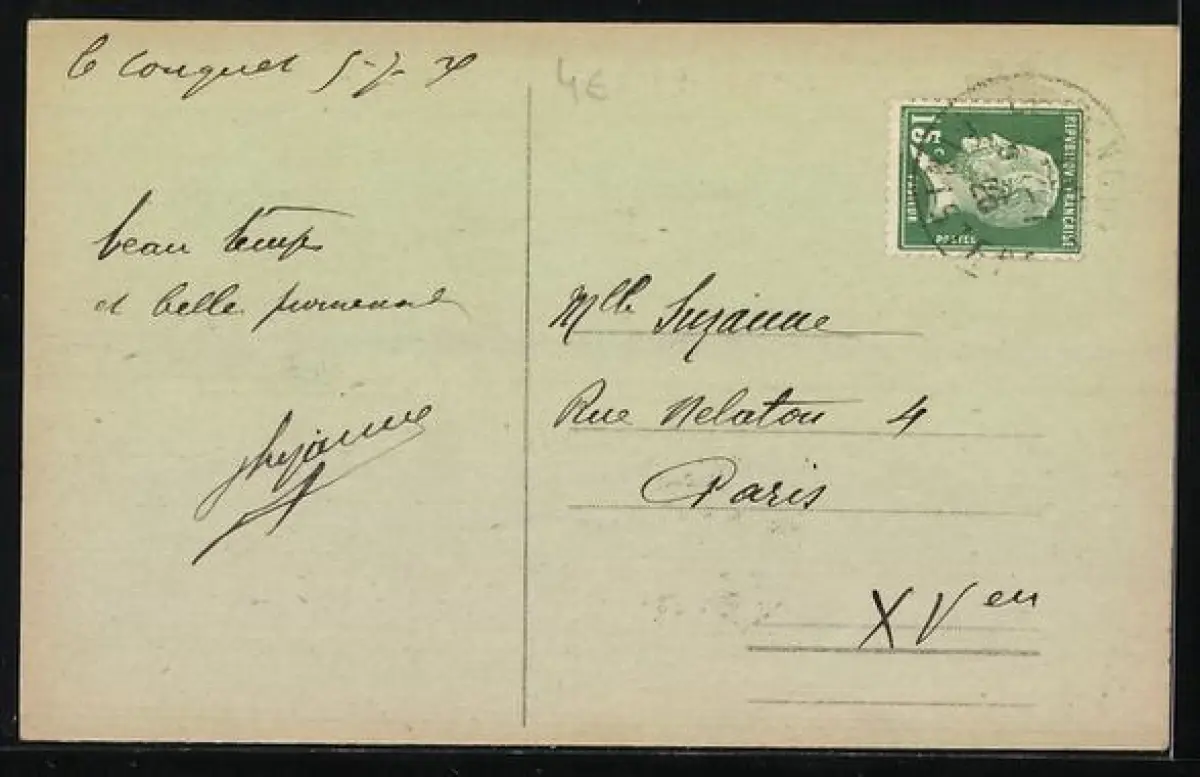 Le Conquet 5-7-
beau temps
et belle promenade
4€
REPUBLIQUE FRANCAISE
15c
POSTES
Mlle Suzanne
Rue Nelaton 4
Paris
XVem